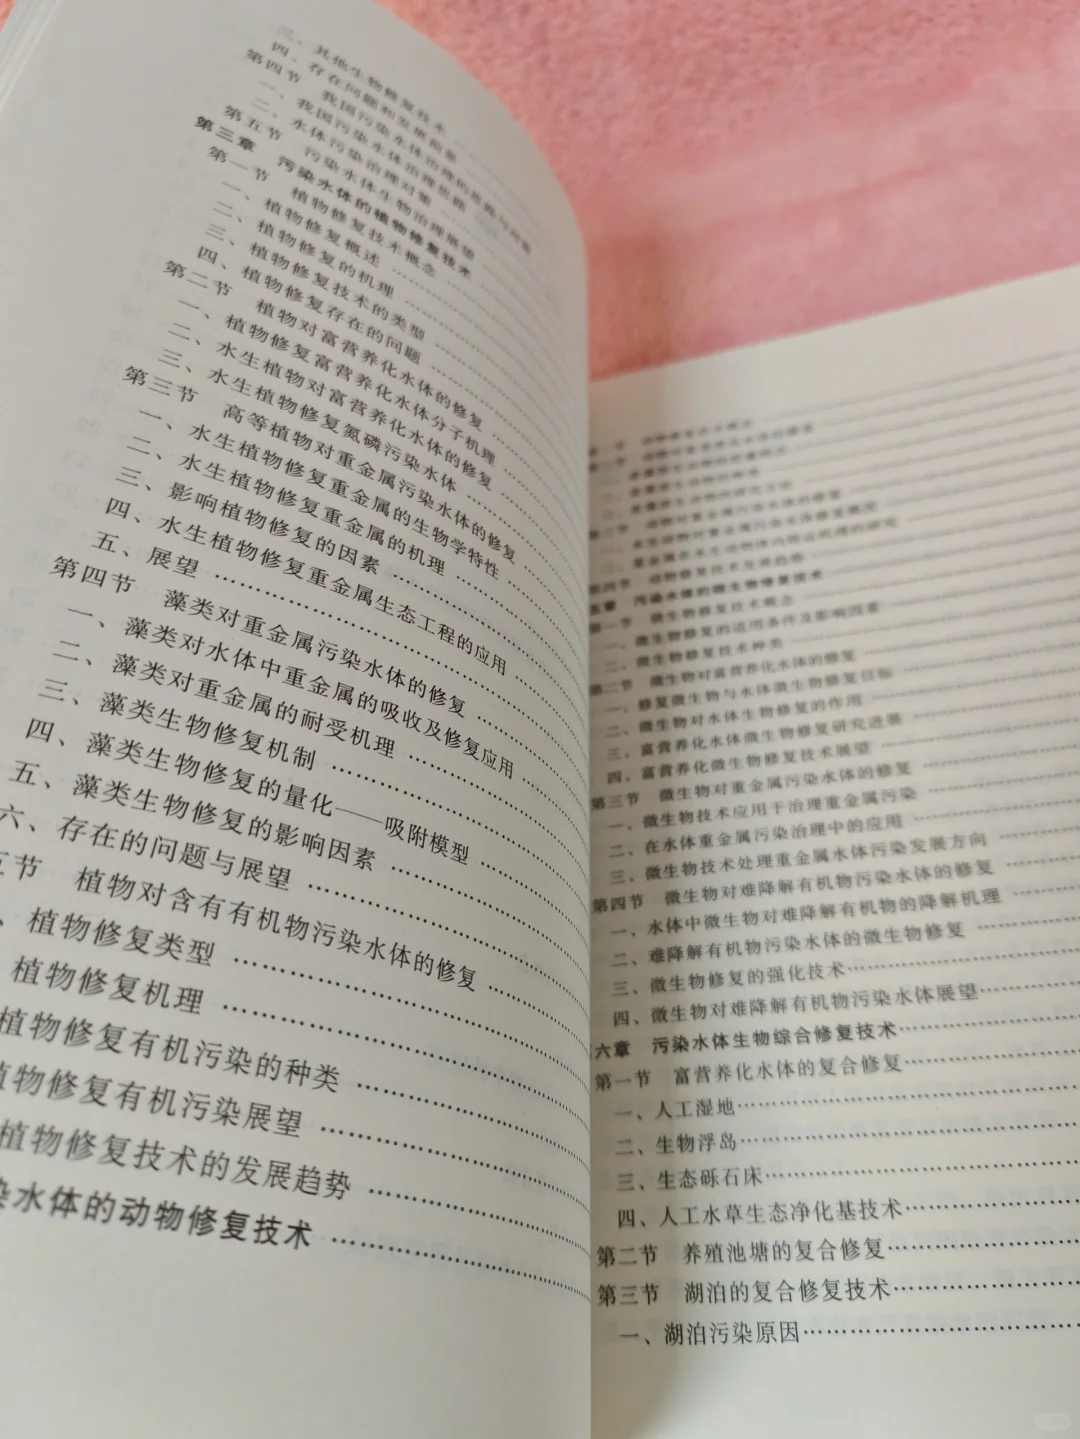 三、其他生物修复技术
四、存在问题和发展前景
第四节 我国污染水体治理的思路与对策
一、我国污染水体治理思路
二、水体污染治理对策
第五节 污染水体生物治理展望
第三章 污染水体的植物修复技术
第一节 植物修复技术概念
一、植物修复概述
二、植物修复的机理
三、植物修复技术的类型
四、植物修复存在的问题
第二节 植物对富营养化水体的修复
一、植物修复富营养化水体分子机理
二、水生植物对富营养化水体的修复
三、水生植物修复氮磷污染水体
第三节 高等植物对重金属污染水体的修复
一、水生植物修复重金属的生物学特性
二、水生植物修复重金属的机理
三、影响植物修复的因素
四、水生植物修复重金属生态工程的应用
五、展望
第四节 藻类对重金属污染水体的修复
一、藻类对水体中重金属的吸收及修复应用
二、藻类对重金属的耐受机理
三、藻类生物修复机制
四、藻类生物修复的量化——吸附模型
五、藻类生物修复的影响因素
六、存在的问题与展望
五节 植物对含有有机物污染水体的修复
、植物修复类型
植物修复机理
植物修复有机污染的种类
植物修复有机污染展望
植物修复技术的发展趋势
染水体的动物修复技术
第四节 动物修复技术发展趋势
五章 污染水体的微生物修复技术
第一节 微生物修复技术概念
一、微生物修复的适用条件及影响因素
二、微生物修复技术种类
第二节 微生物对富营养化水体的修复
一、修复微生物与水体微生物修复目标
二、微生物对水体生物修复的作用
三、富营养化水体微生物修复研究进展
四、富营养化微生物修复技术展望
第三节 微生物对重金属污染水体的修复
一、微生物技术应用于治理重金属污染
二、在水体重金属污染治理中的应用
三、微生物技术处理重金属水体污染发展方向
第四节 微生物对难降解有机物污染水体的修复
一、水体中微生物对难降解有机物的降解机理
二、难降解有机物污染水体的微生物修复
三、微生物修复的强化技术
四、微生物对难降解有机物污染水体展望
六章 污染水体生物综合修复技术
第一节 富营养化水体的复合修复
一、人工湿地
二、生物浮岛
三、生态砾石床
四、人工水草生态净化基技术
第二节 养殖池塘的复合修复
第三节 湖泊的复合修复技术
一、湖泊污染原因